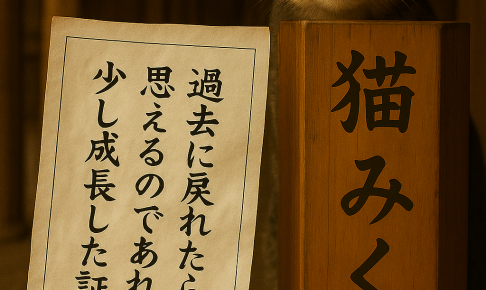 過去に戻れたら
思えるのであれ
少し成長した証
猫みく